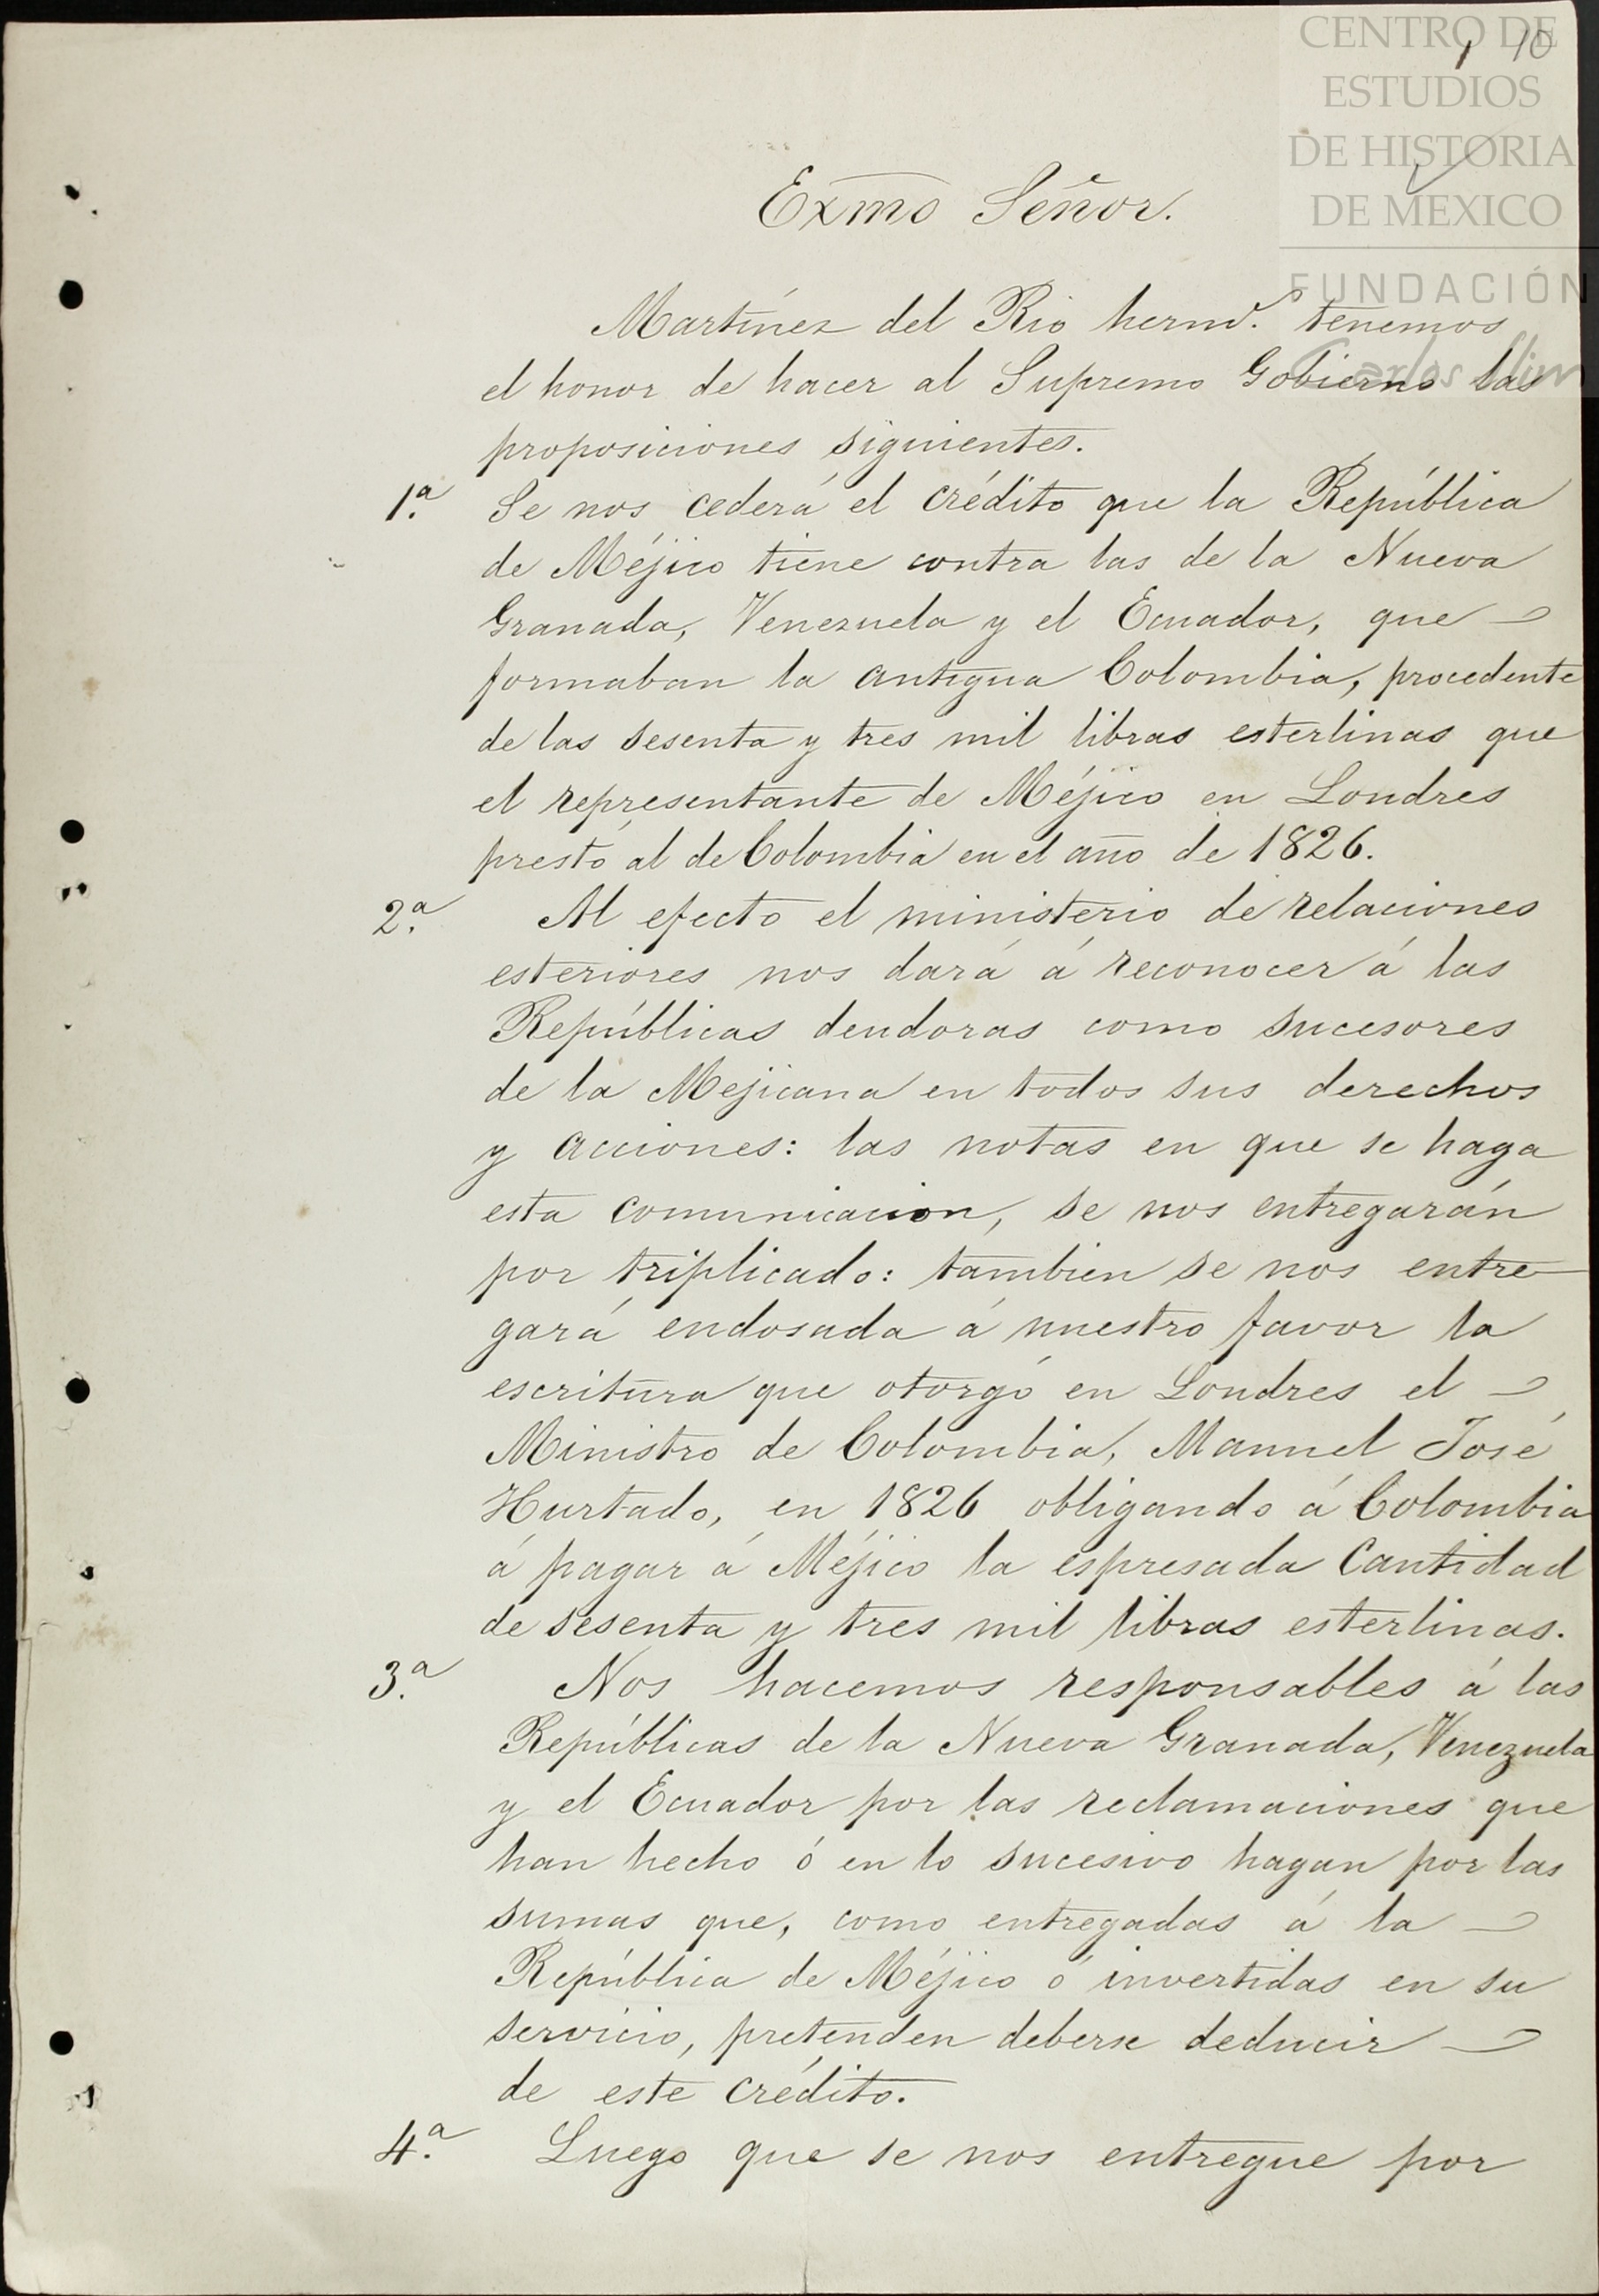 CENTRO DE
ESTUDIOS
DE HISTORIA
DE MEXICO
FUNDACIÓN
Carlos Slim
1 10
Exmo Señor.
Martínez del Rio hermˢ. tenemos
el honor de hacer al Supremo Gobierno las
proposiciones siguientes.
1.ª Se nos cederá el crédito que la República
de Méjico tiene contra las de la Nueva
Granada, Venezuela y el Ecuador, que
formaban la antigua Colombia, procedente
de las sesenta y tres mil libras esterlinas que
el representante de Méjico en Londres
prestó al de Colombia en el año de 1826.
2.ª Al efecto el ministerio de relaciones
esteriores nos dará á reconocer á las
Repúblicas deudoras como sucesores
de la Mejicana en todos sus derechos
y acciones: las notas en que se haga
esta comunicacion, se nos entregarán
por triplicado: tambien se nos entre
gará endosada á nuestro favor la
escritura que otorgó en Londres el
Ministro de Colombia, Manuel José
Hurtado, en 1826 obligando á Colombia
á pagar á Méjico la espresada Cantidad
de sesenta y tres mil libras esterlinas.
3.ª Nos hacemos responsables á las
Repúblicas de la Nueva Granada, Venezuela
y el Ecuador por las reclamaciones que
han hecho ó en lo sucesivo hagan por las
sumas que, como entregadas á la
República de Méjico ó invertidas en su
servicio, pretenden deberse deducir
de este crédito.
4.ª Luego que se nos entregue por